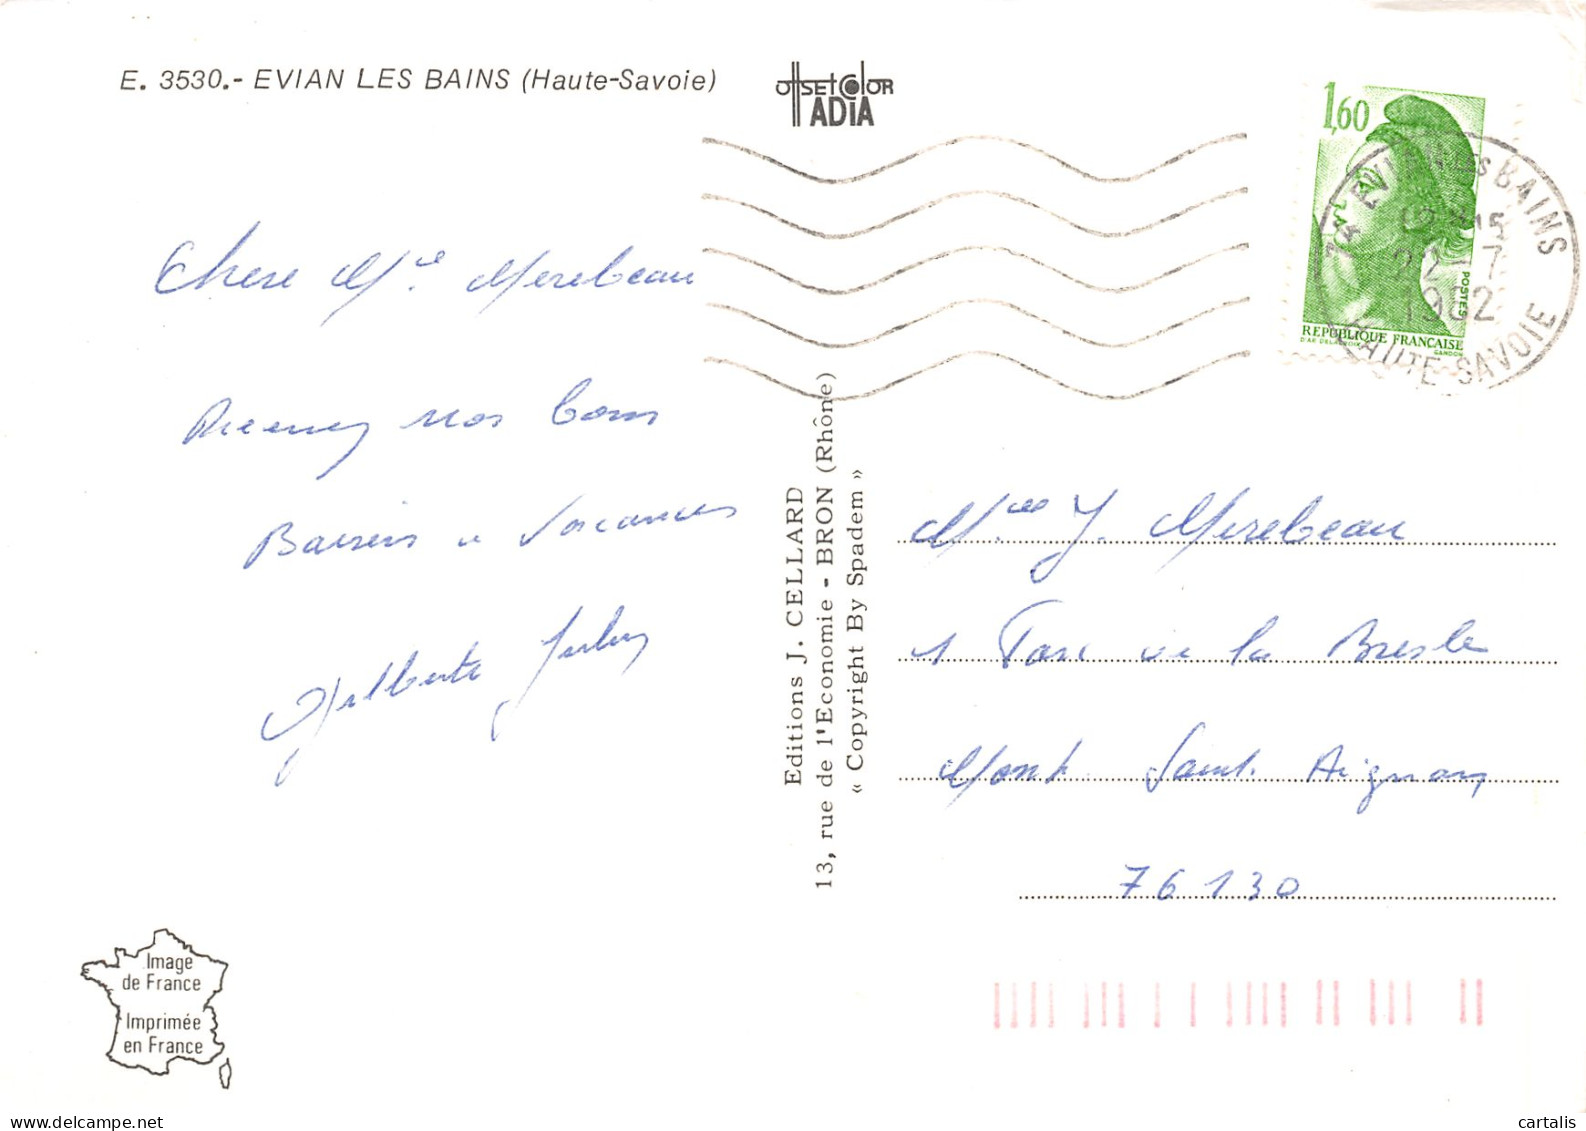 E. 3530.- EVIAN LES BAINS (Haute-Savoie)
OffSEt COlOR
ADiA
1,60
POSTES
REPUBLIQUE FRANÇAISE
D'AP. DELACROIX GANDON
74 EVIAN LES BAINS
22 - 7
1982
HAUTE-SAVOIE
Chere Mlle Merebeau
Recevez nos bons
Baisers de Vacances
Gilberte
Editions J. CELLARD
13, rue de l'Economie - BRON (Rhône)
« Copyright By Spadem »
Melle J. Merebeau
1 Parc de la Bresle
Mont Saint Aignan
76130
Image
de France
Imprimée
en France
delcampe.net
cartalis